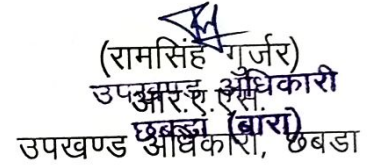 (रामसिंह गुर्जर)
उपखण्ड अधिकारी
आर.ए.एस.
छबडा (बारा)
उपखण्ड अधिकारी, छबडा